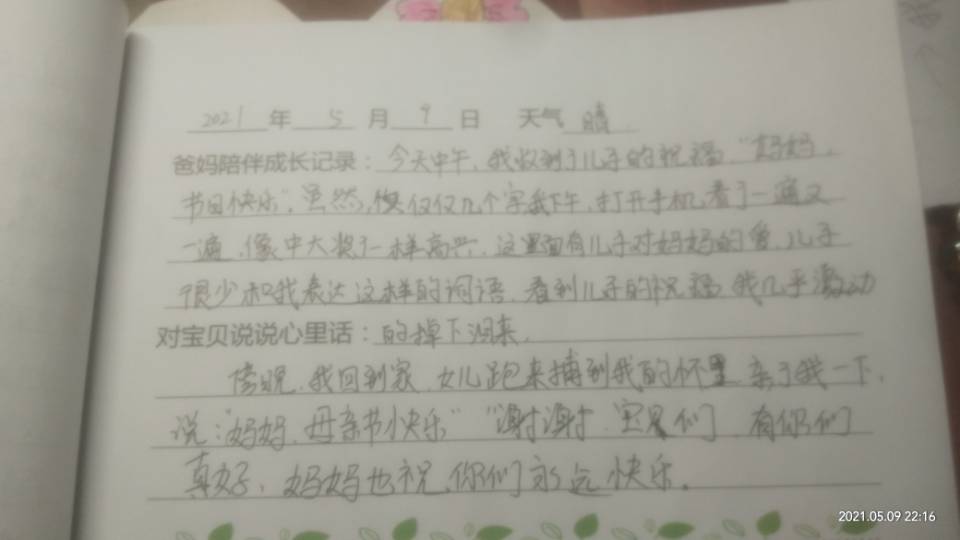 2021年5月9日 天气 晴
爸妈陪伴成长记录：今天中午，我收到了儿子的祝福“妈妈，
节日快乐”，虽然，仅仅几个字我下午，打开手机，看了一遍又
一遍，像中大奖了一样高兴，这里面有儿子对妈妈的爱，儿子
很少和我表达这样的词语，看到儿子的祝福，我几乎激动
对宝贝说说心里话：的掉下泪来，
傍晚，我回到家，女儿跑来捕到我的怀里，亲了我一下，
说：“妈妈，母亲节快乐”“谢谢，宝贝们，有你们
真好，妈妈也祝你们永远快乐。
2021.05.09 22:16